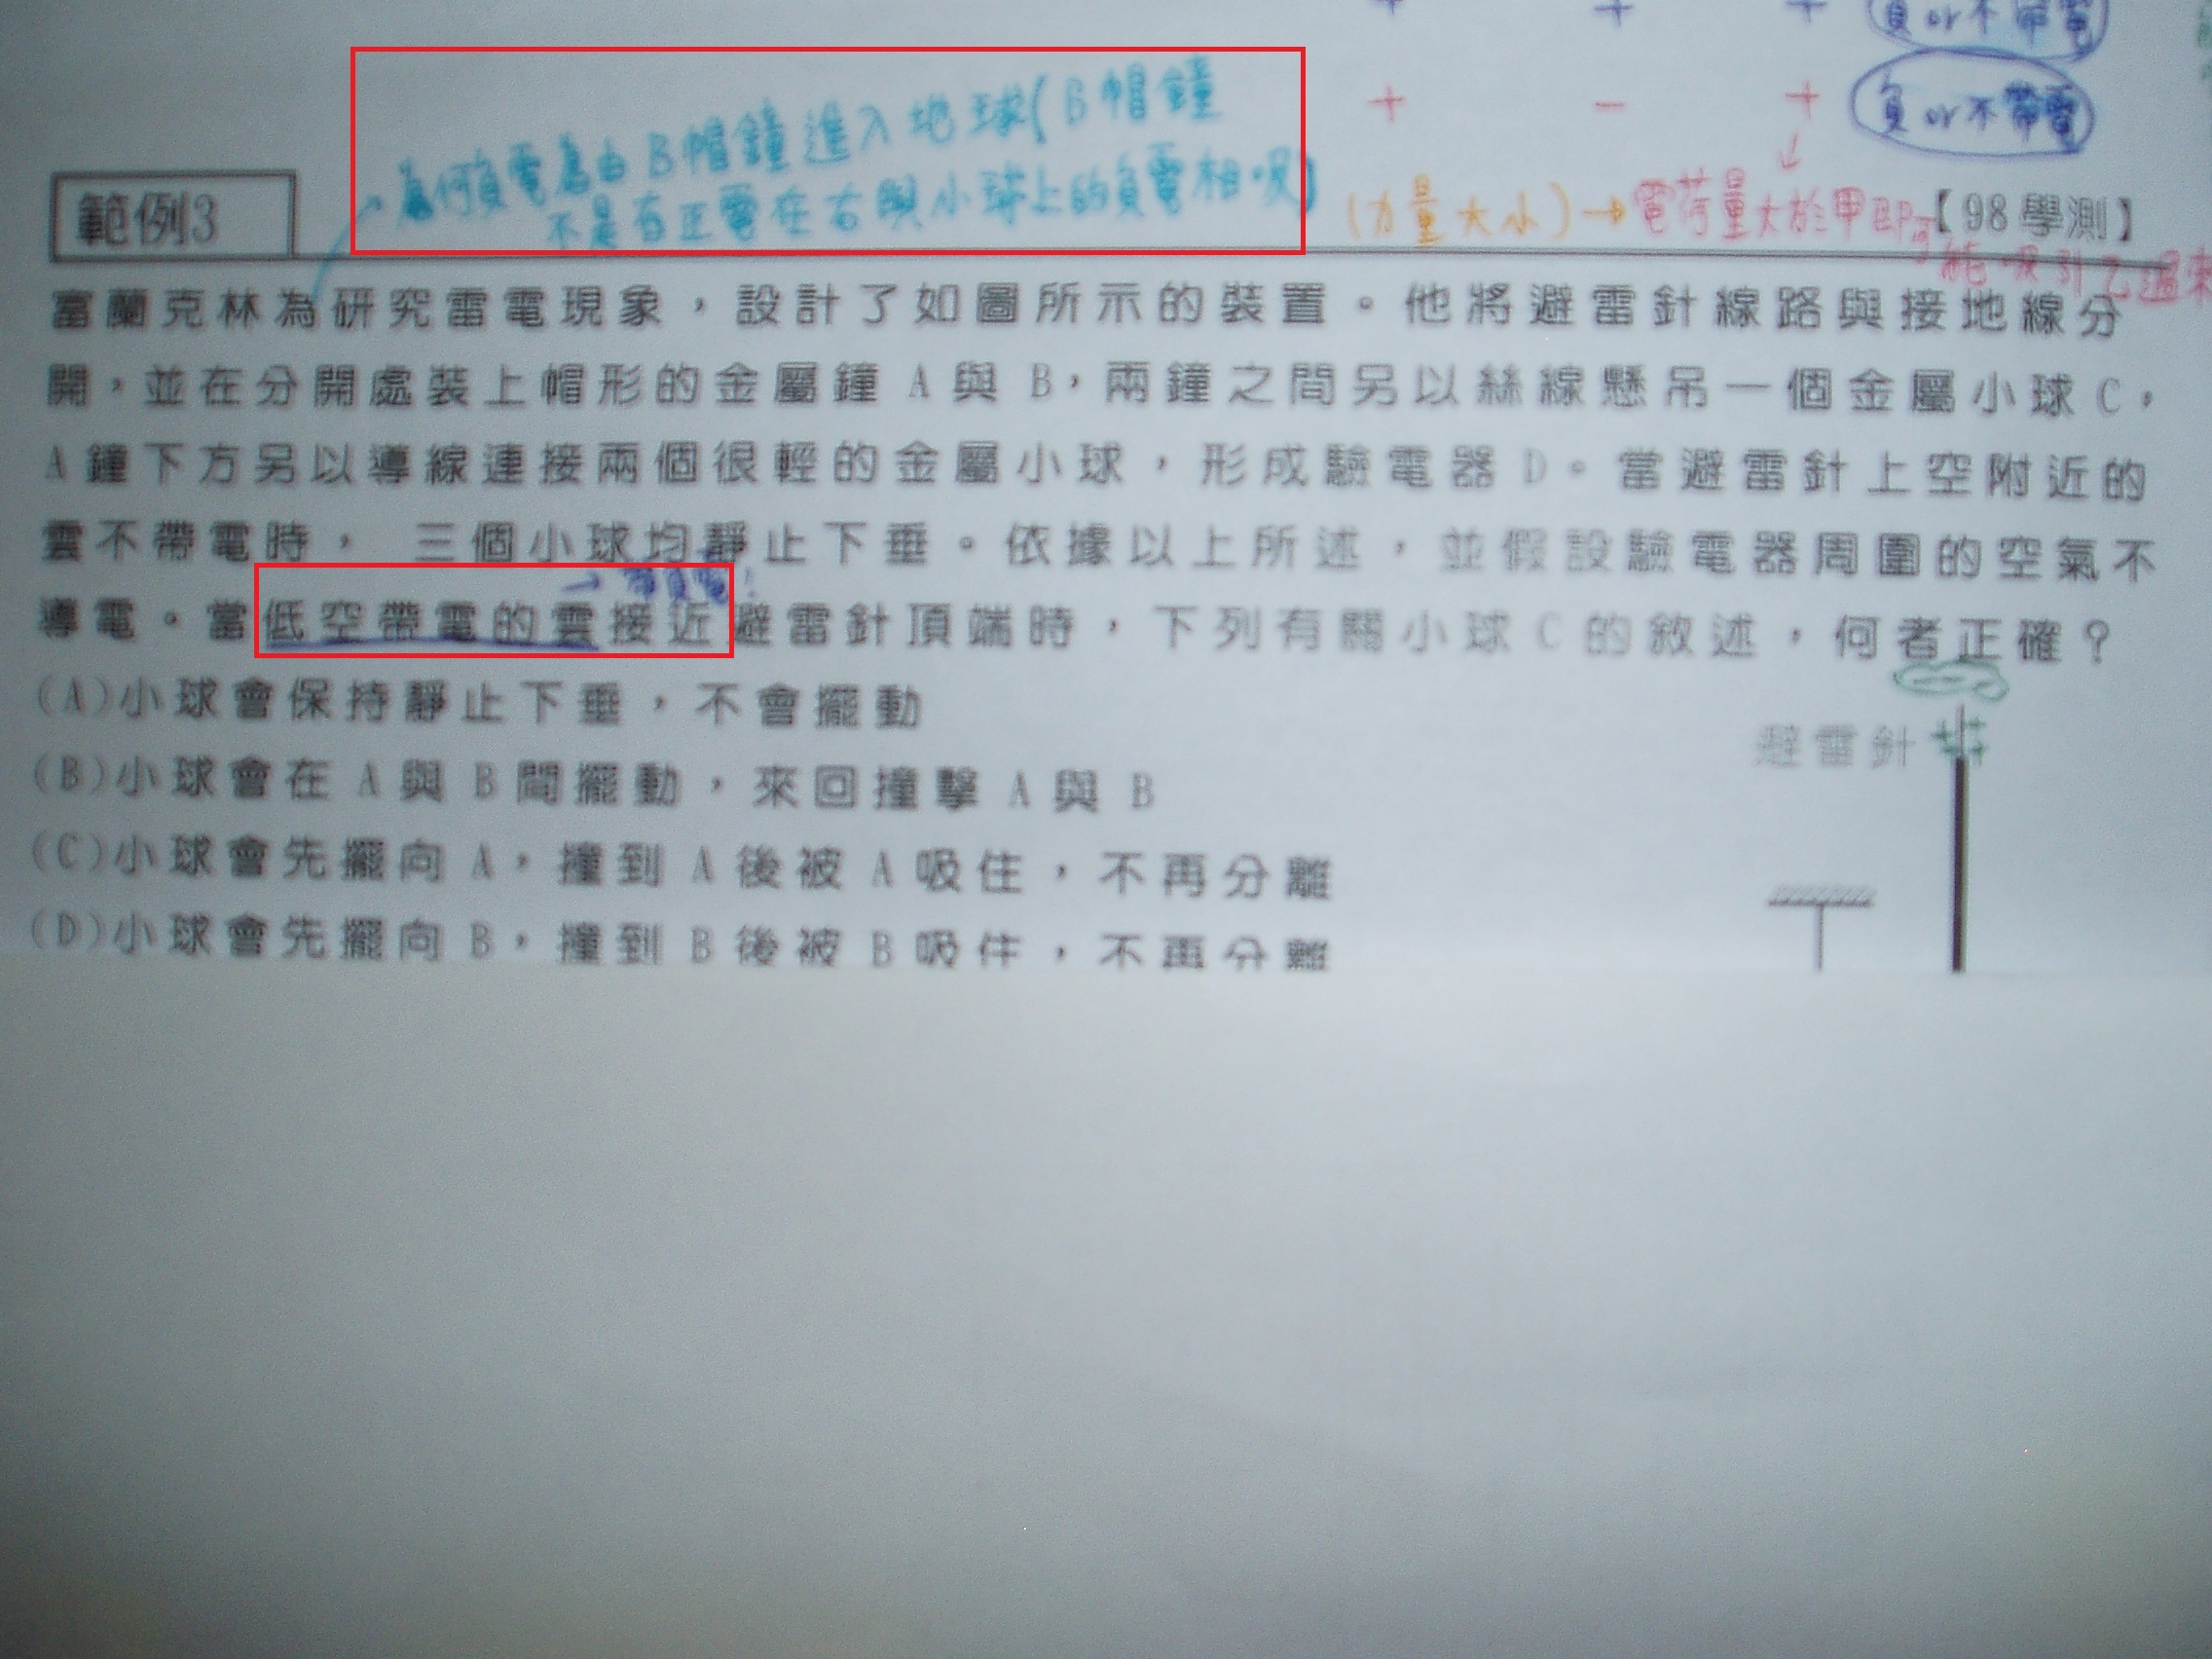 + + + 負or不帶電
+ - + 負or不帶電
為何負電為由B帽鐘進入地球(B帽鐘
不是有正電在右與小球上的負電相吸)
(力量大小)→電荷量大於甲即可
能吸引乙過來
範例3
【98學測】
富蘭克林為研究雷電現象,設計了如圖所示的裝置。他將避雷針線路與接地線分
開,並在分開處裝上帽形的金屬鐘 A 與 B,兩鐘之間另以絲線懸吊一個金屬小球 C,
A 鐘下方另以導線連接兩個很輕的金屬小球,形成驗電器 D。當避雷針上空附近的
雲不帶電時, 三個小球均靜止下垂。依據以上所述,並假設驗電器周圍的空氣不
→帶負電!
導電。當低空帶電的雲接近避雷針頂端時,下列有關小球 C 的敘述,何者正確?
(A)小球會保持靜止下垂,不會擺動
避雷針
(B)小球會在 A 與 B 間擺動,來回撞擊 A 與 B
(C)小球會先擺向 A,撞到 A 後被 A 吸住,不再分離
(D)小球會先擺向 B,撞到 B 後被 B 吸住,不再分離